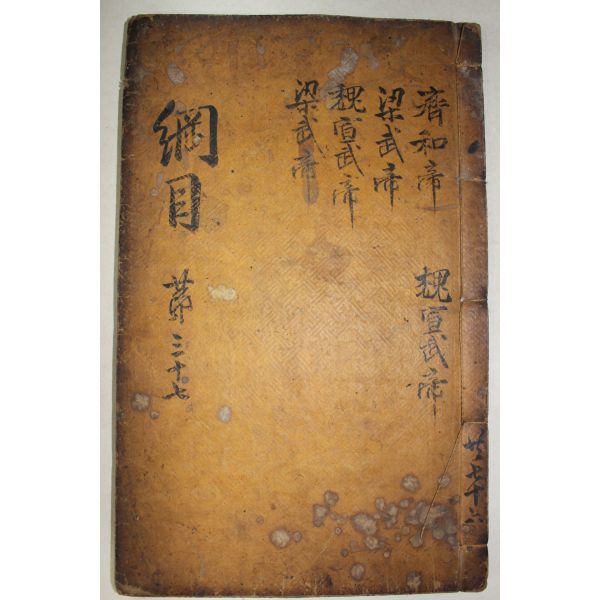 濟和帝 魏宣武帝
梁武帝
魏宣武帝
梁武帝
綱目 第三十七
共七十六